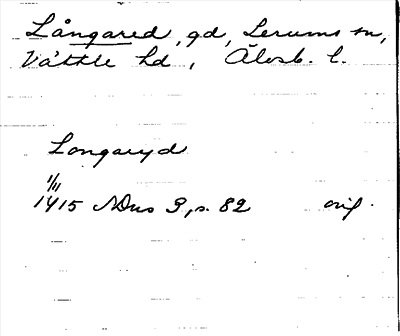 Långared, gd, Lerums sn,
Vättle hd, Älvsb. l.
Longaryd
1/11
1415 NDns 3, s. 82 orig.